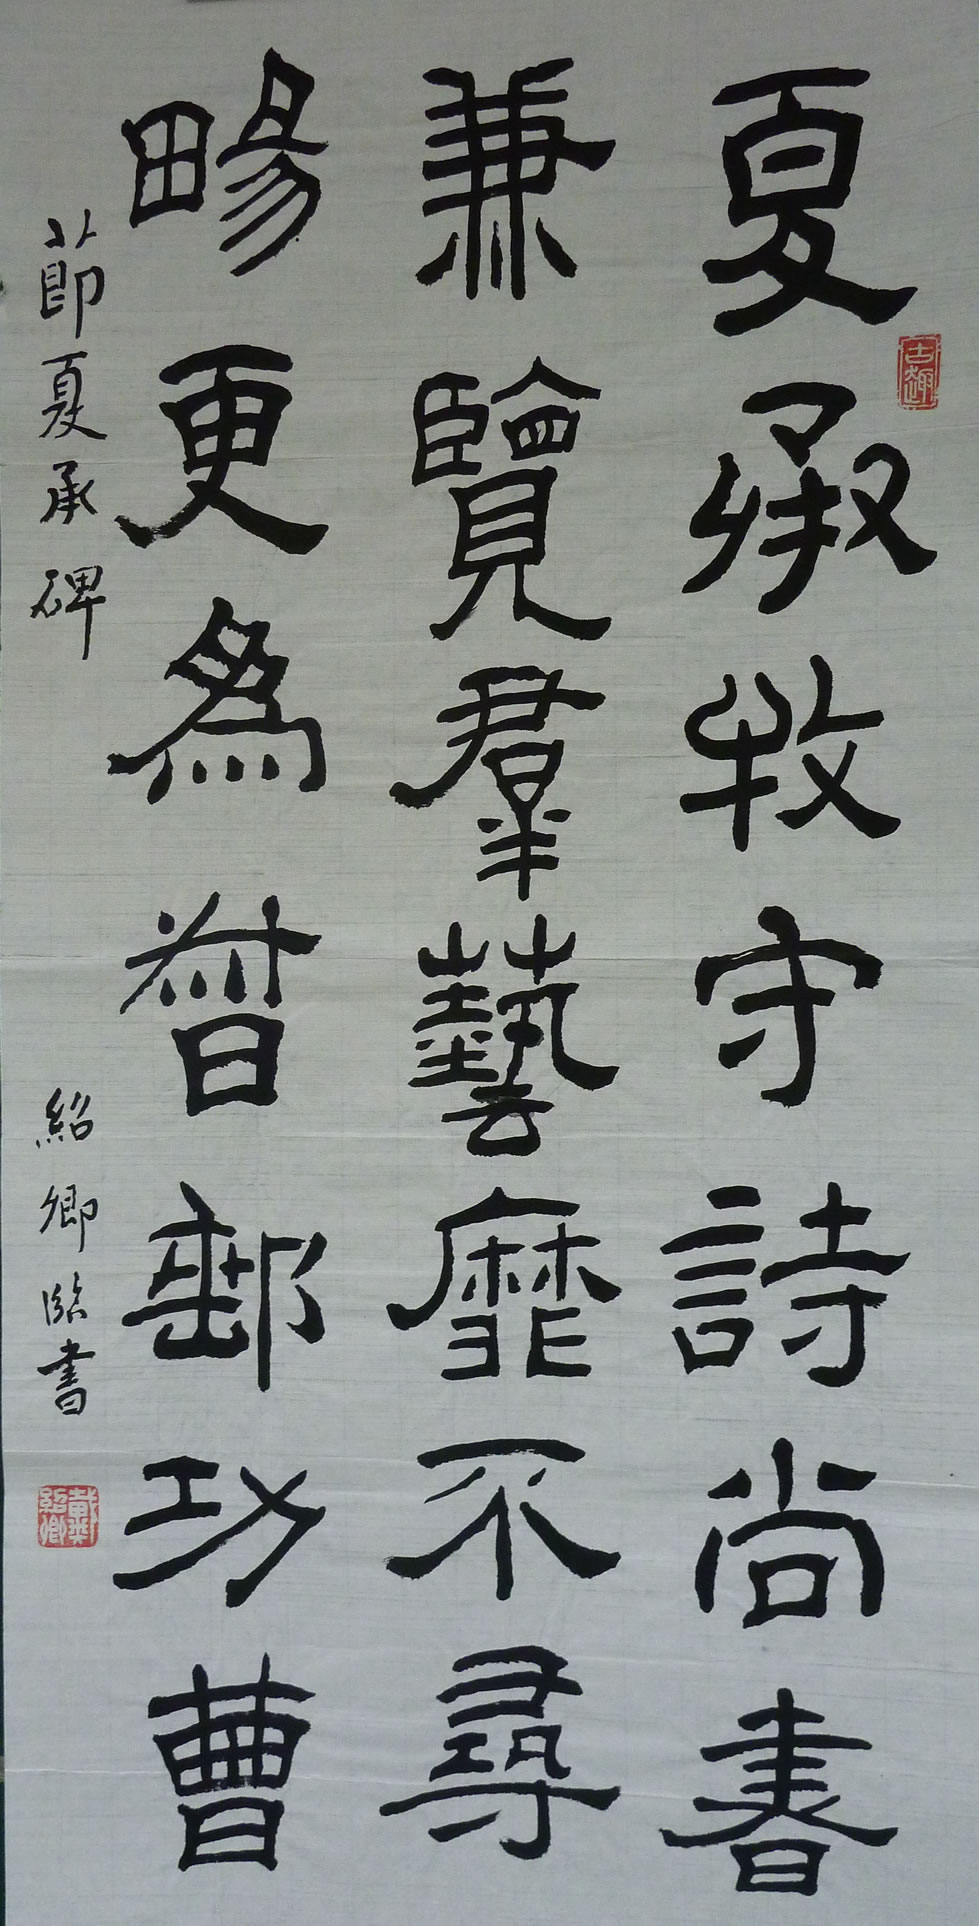 夏承牧守詩尚書
古趣
兼覽羣藝靡不尋
畼更為督郵功曹
節夏承碑
紹卿臨書
戴紹卿